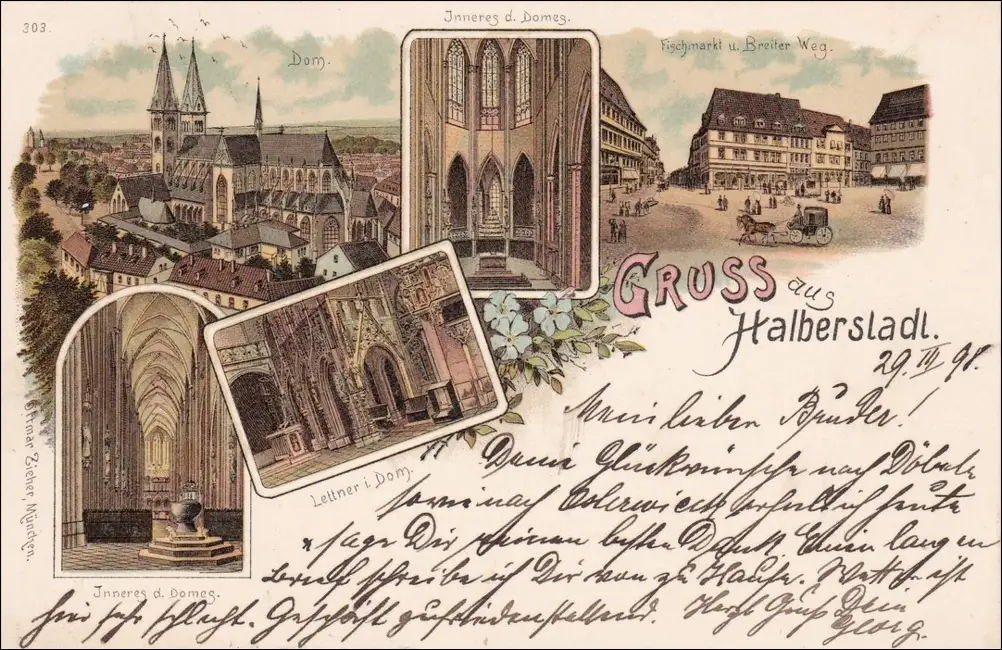 303.
Inneres d. Domes.
Dom.
Fischmarkt u. Breiter Weg.
Gruss aus
Halberstadt.
29. III 98.
Mein lieber Bruder!
Deine Glückwünsche nach Döbeln
sowie nach erhielt ich heute
sage Dir meinen besten Dank. Einen langen
Brief schreibe ich Dir von zu Hause. Wetter ist
hier sehr schlecht. Geschäft zufriedenstellend. Herzl Gruß Dein
Georg.
Lettner i. Dom.
Inneres d. Domes.
Ottmar Zieher, München.